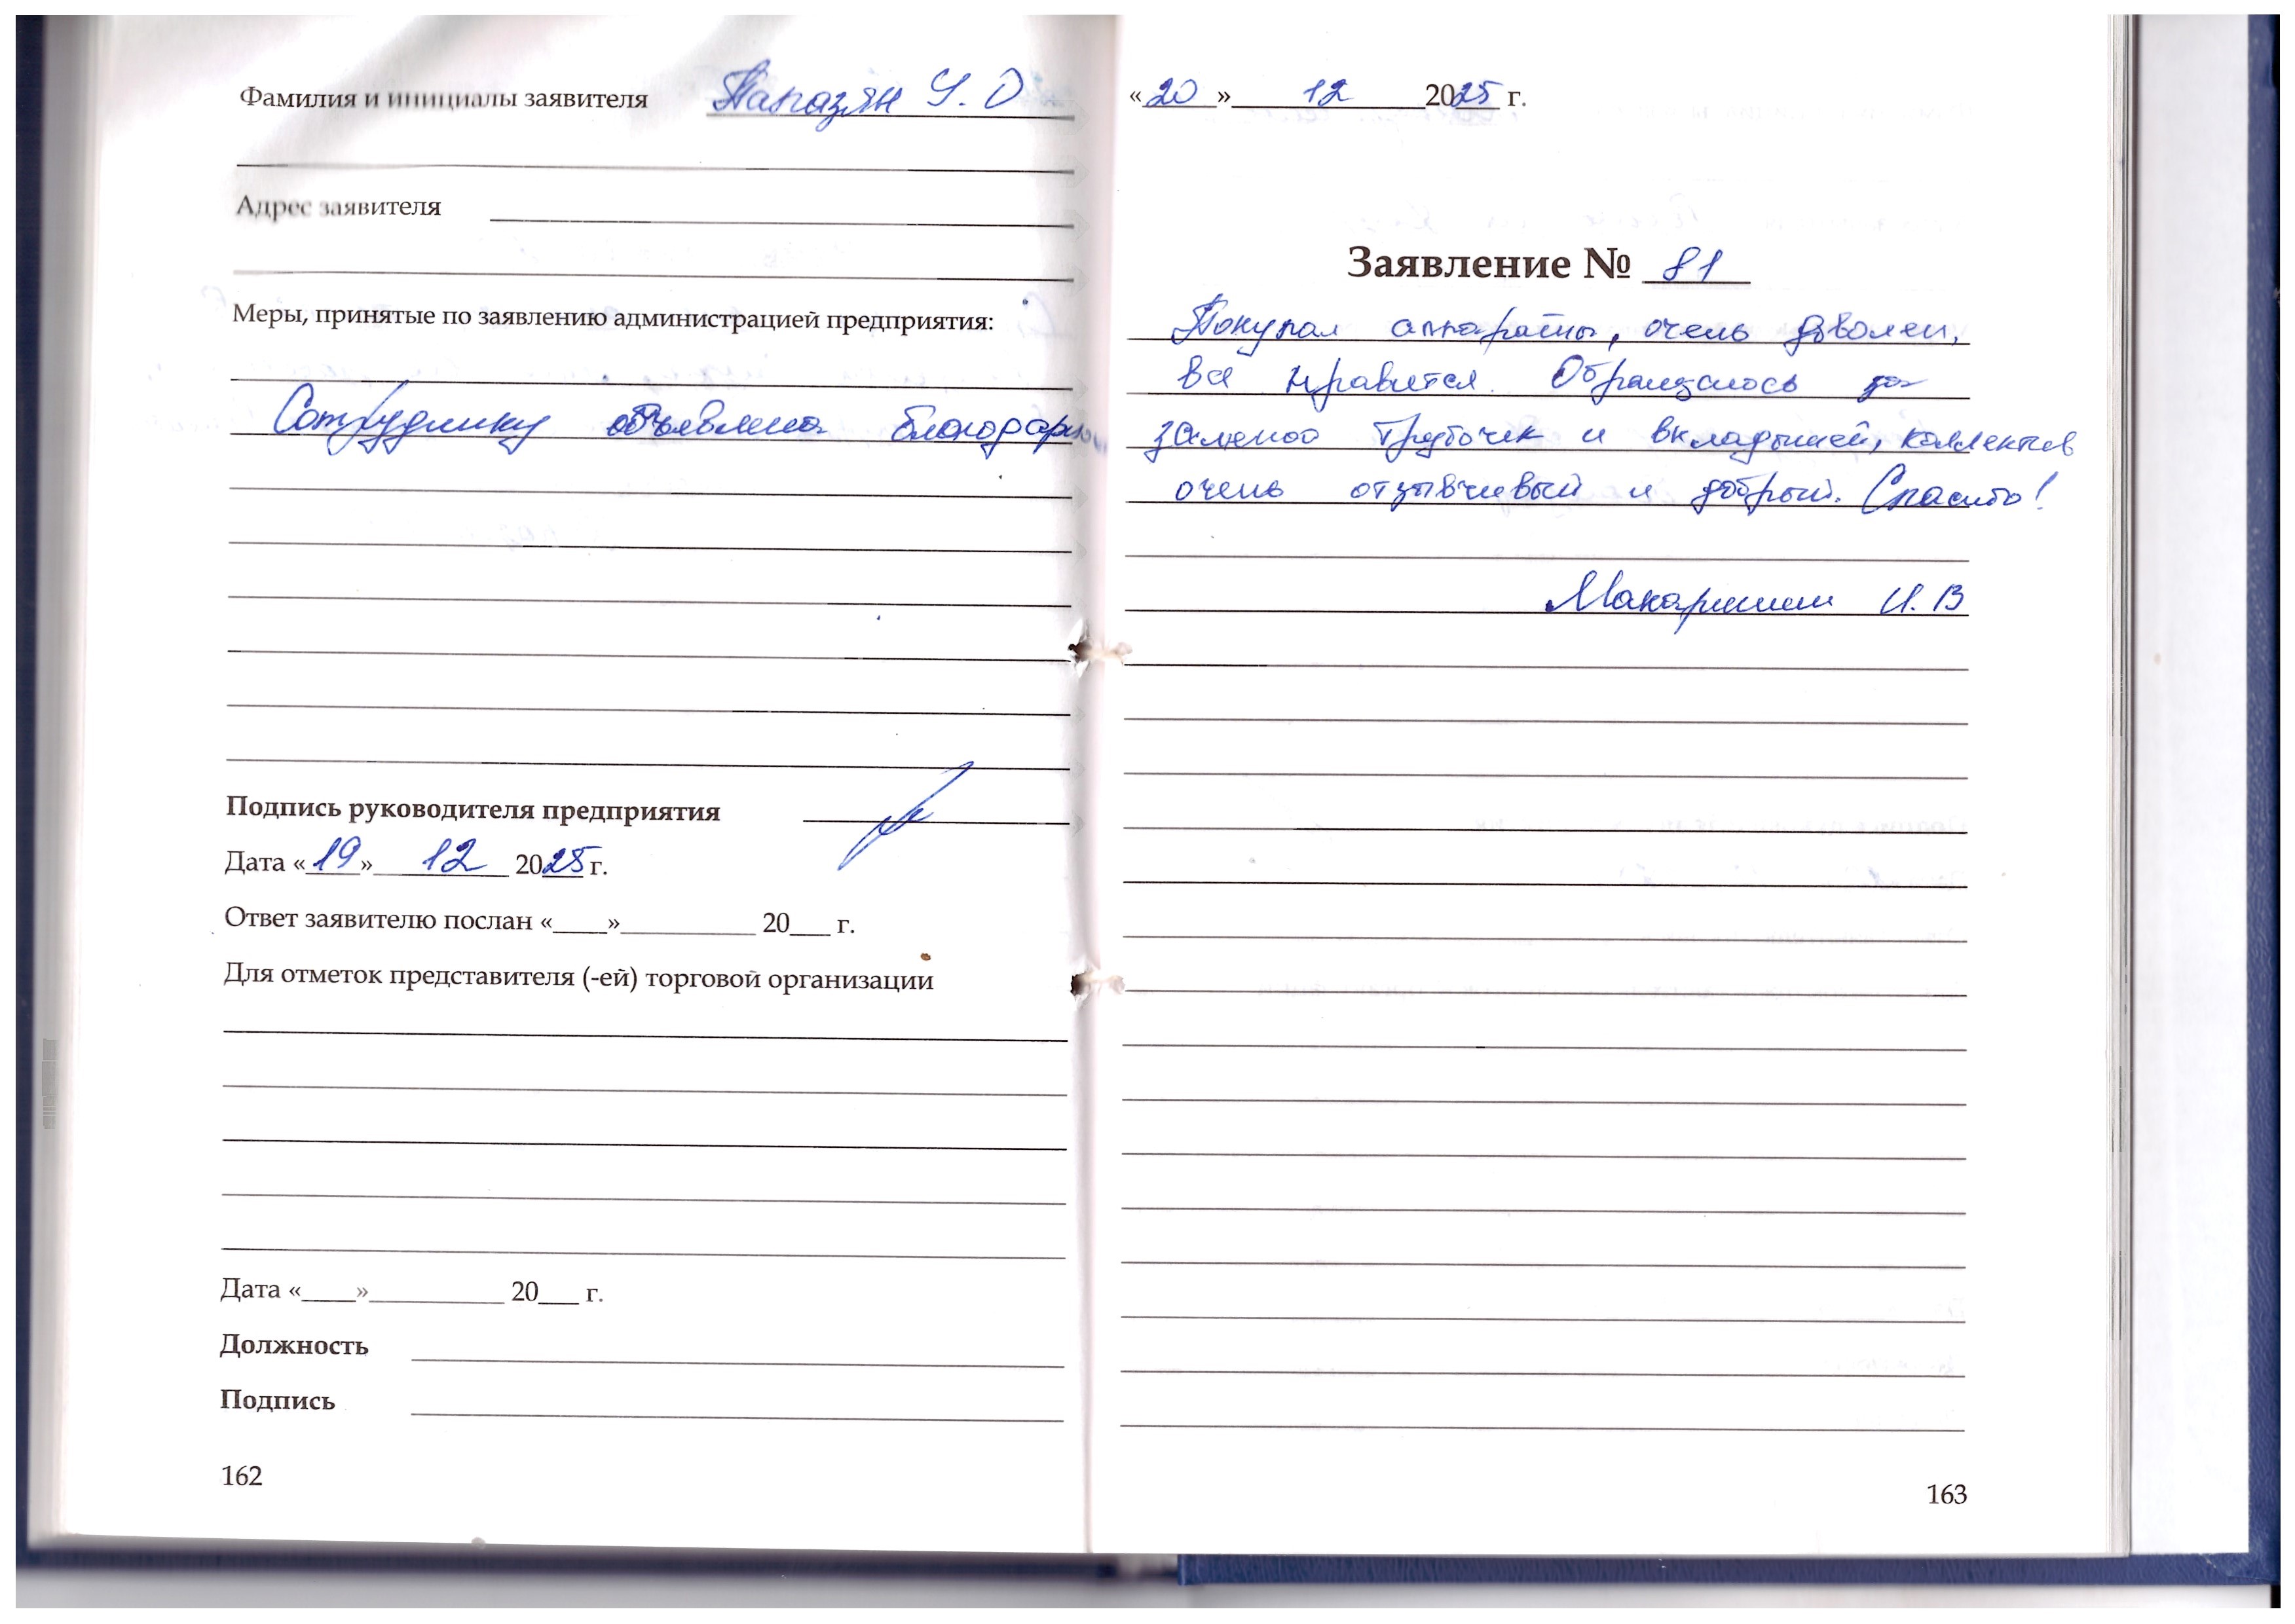 Фамилия и инициалы заявителя Папазян У. О
Адрес заявителя
Меры, принятые по заявлению администрацией предприятия:
Сотруднику объявлена благодарн
Подпись руководителя предприятия
Дата «19» 12 2025 г.
Ответ заявителю послан «____»__________ 20___ г.
Для отметок представителя (-ей) торговой организации
Дата «____»__________ 20___ г.
Должность
Подпись
162
«20» 12 2025 г.
Заявление № 81
Покупал аппараты, очень доволен,
всё нравится. Обращаюсь за
заменой трубочек и вкладышей, коллектив
очень отзывчивый и добрый. Спасибо!
И. В
163